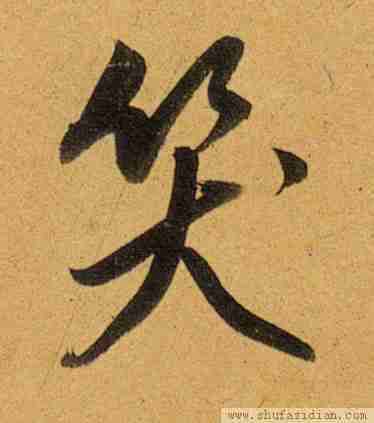 笑
www.shufazidian.com